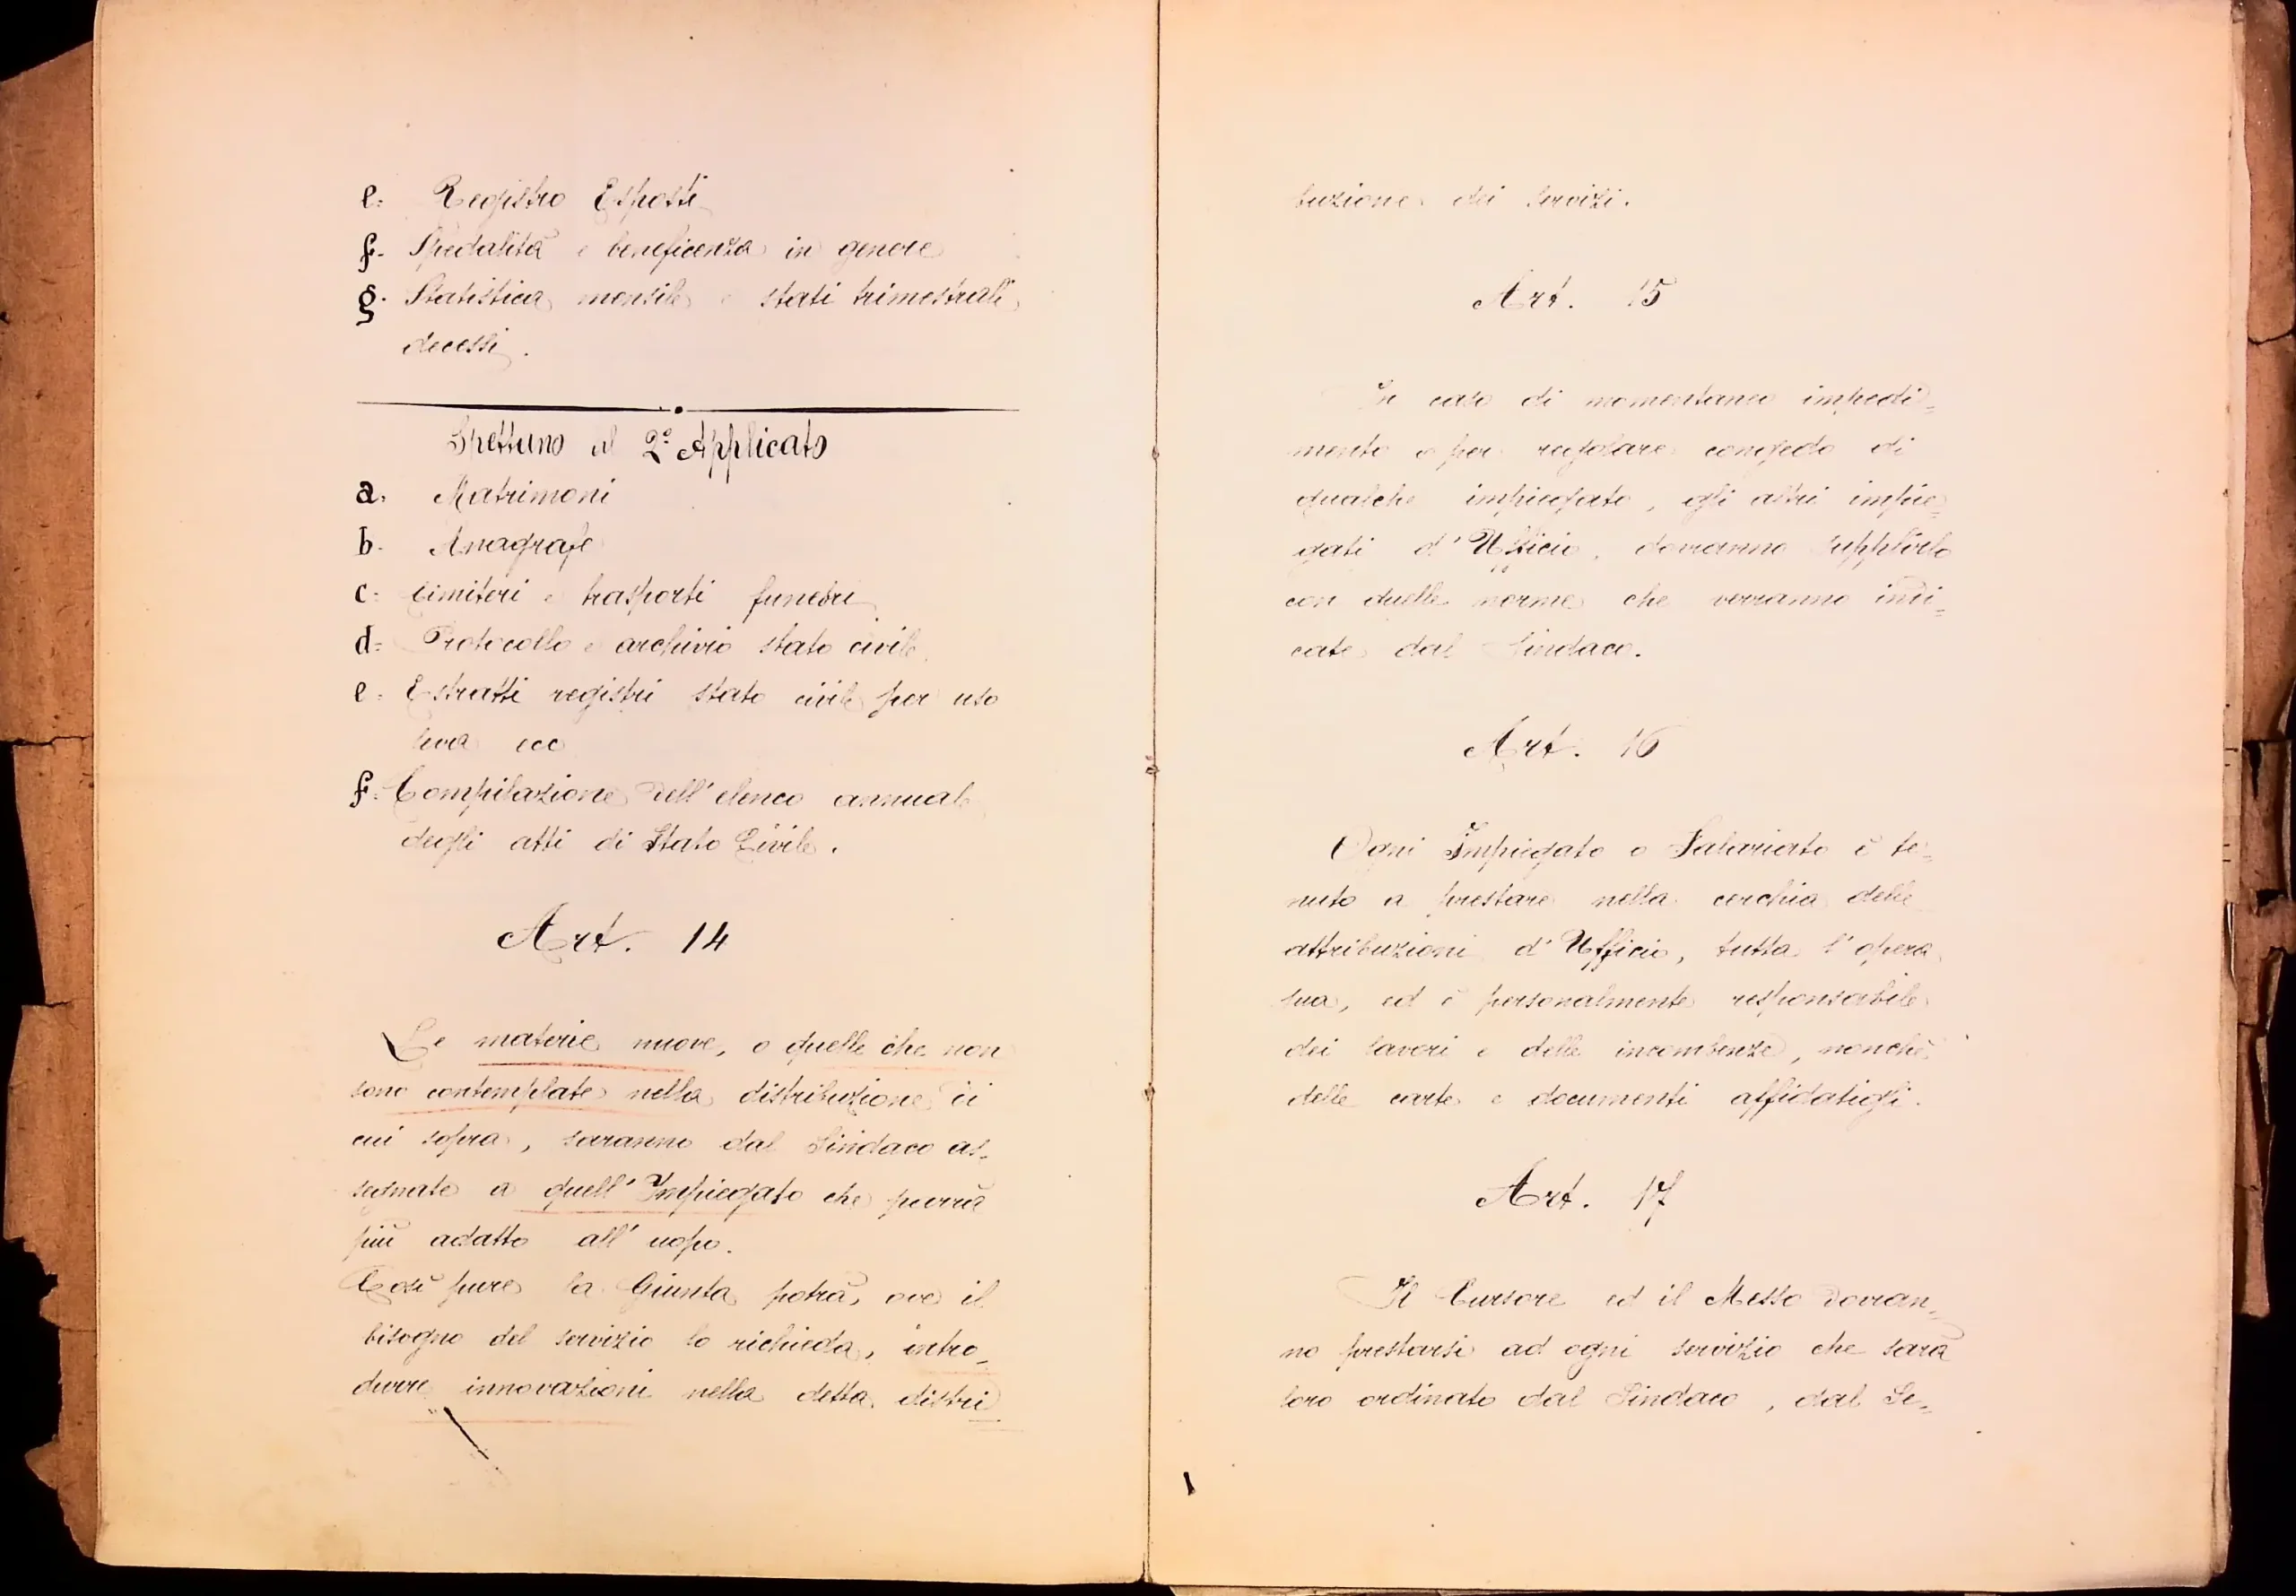 e= Registro Esposti
f- Spedalità e beneficenza in genere
g. Statistica mensile e stati trimestrali
decessi.
Spettano al 2º Applicato
a. Matrimoni
b. Anagrafe
c= Cimiteri e trasporti funebri
d= Protocollo e archivio stato civile
e= Estratti registri stato civile per uso
leva ecc
f= Compilazione dell'elenco annuale
degli atti di Stato Civile.
Art. 14
Le materie nuove, o quelle che non
sono contemplate nella distribuzione di
cui sopra, saranno dal Sindaco as=
segnate a quell'Impiegato che parrà
più adatto all'uopo.
Così pure la Giunta potrà, ove il
bisogno del servizio lo richieda, intro=
durre innovazioni nella detta distri
buzione dei servizi.
Art. 15
In caso di momentaneo impedi=
mento o per regolare congedo di
qualche impiegato, gli altri impie=
gati d'Ufficio, dovranno supplirlo
con quelle norme che verranno indi=
cate dal Sindaco.
Art. 16
Ogni Impiegato o Salariato è te=
nuto a prestare nella cerchia delle
attribuzioni d'Ufficio, tutta l'opera
sua, ed è personalmente responsabile
dei lavori e delle incombenze, nonchè
delle carte e documenti affidatigli.
Art. 17
Il Cursore ed il Messo dovran=
no prestarsi ad ogni servizio che sarà
loro ordinato dal Sindaco, dal Se=